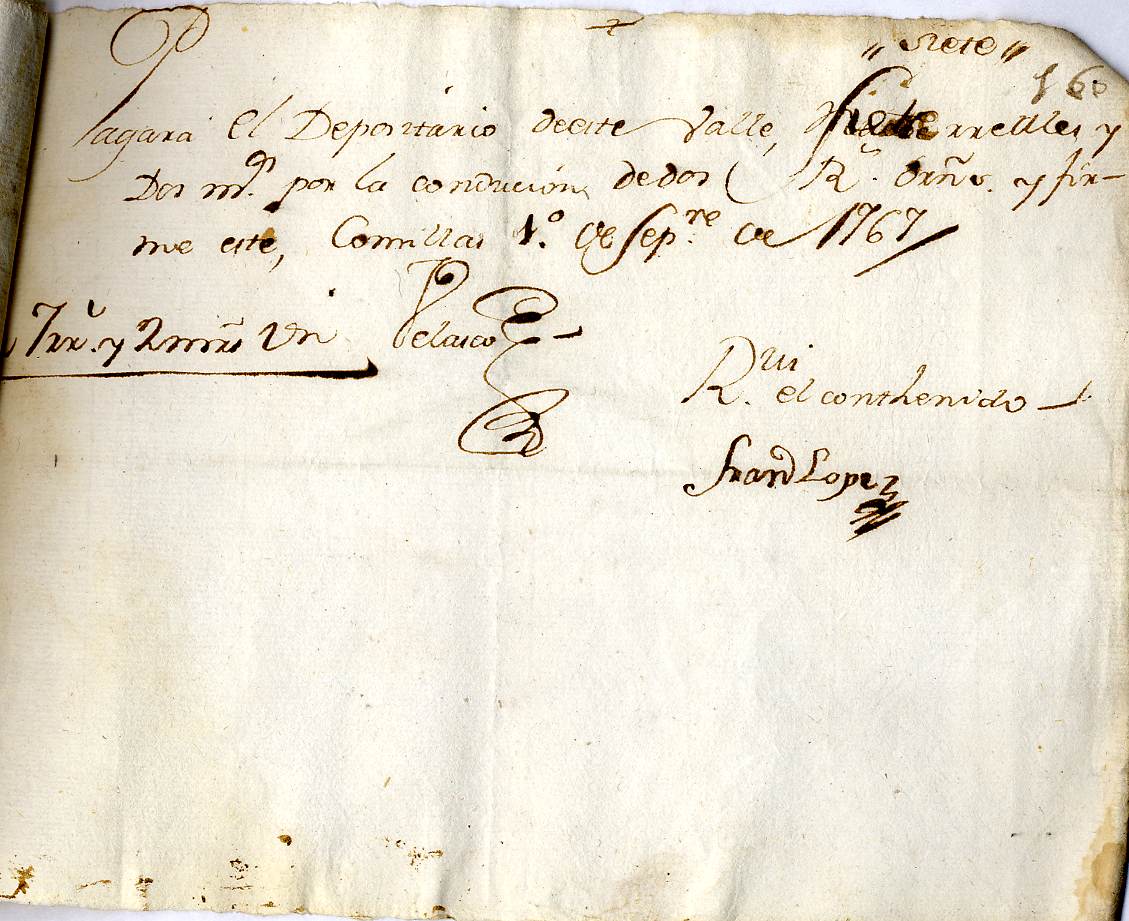 " siete "
160
Pagara el Depositario deeste Valle, Siete rrealles y
Dos ms. por la conducion dedos Rs. Orns. y fir-
me este, Comillas 1º. de Sepre. de 1767
7 rrs. y 2 mrs Vn Velasco
Rui el conthenido
Franco Lopez